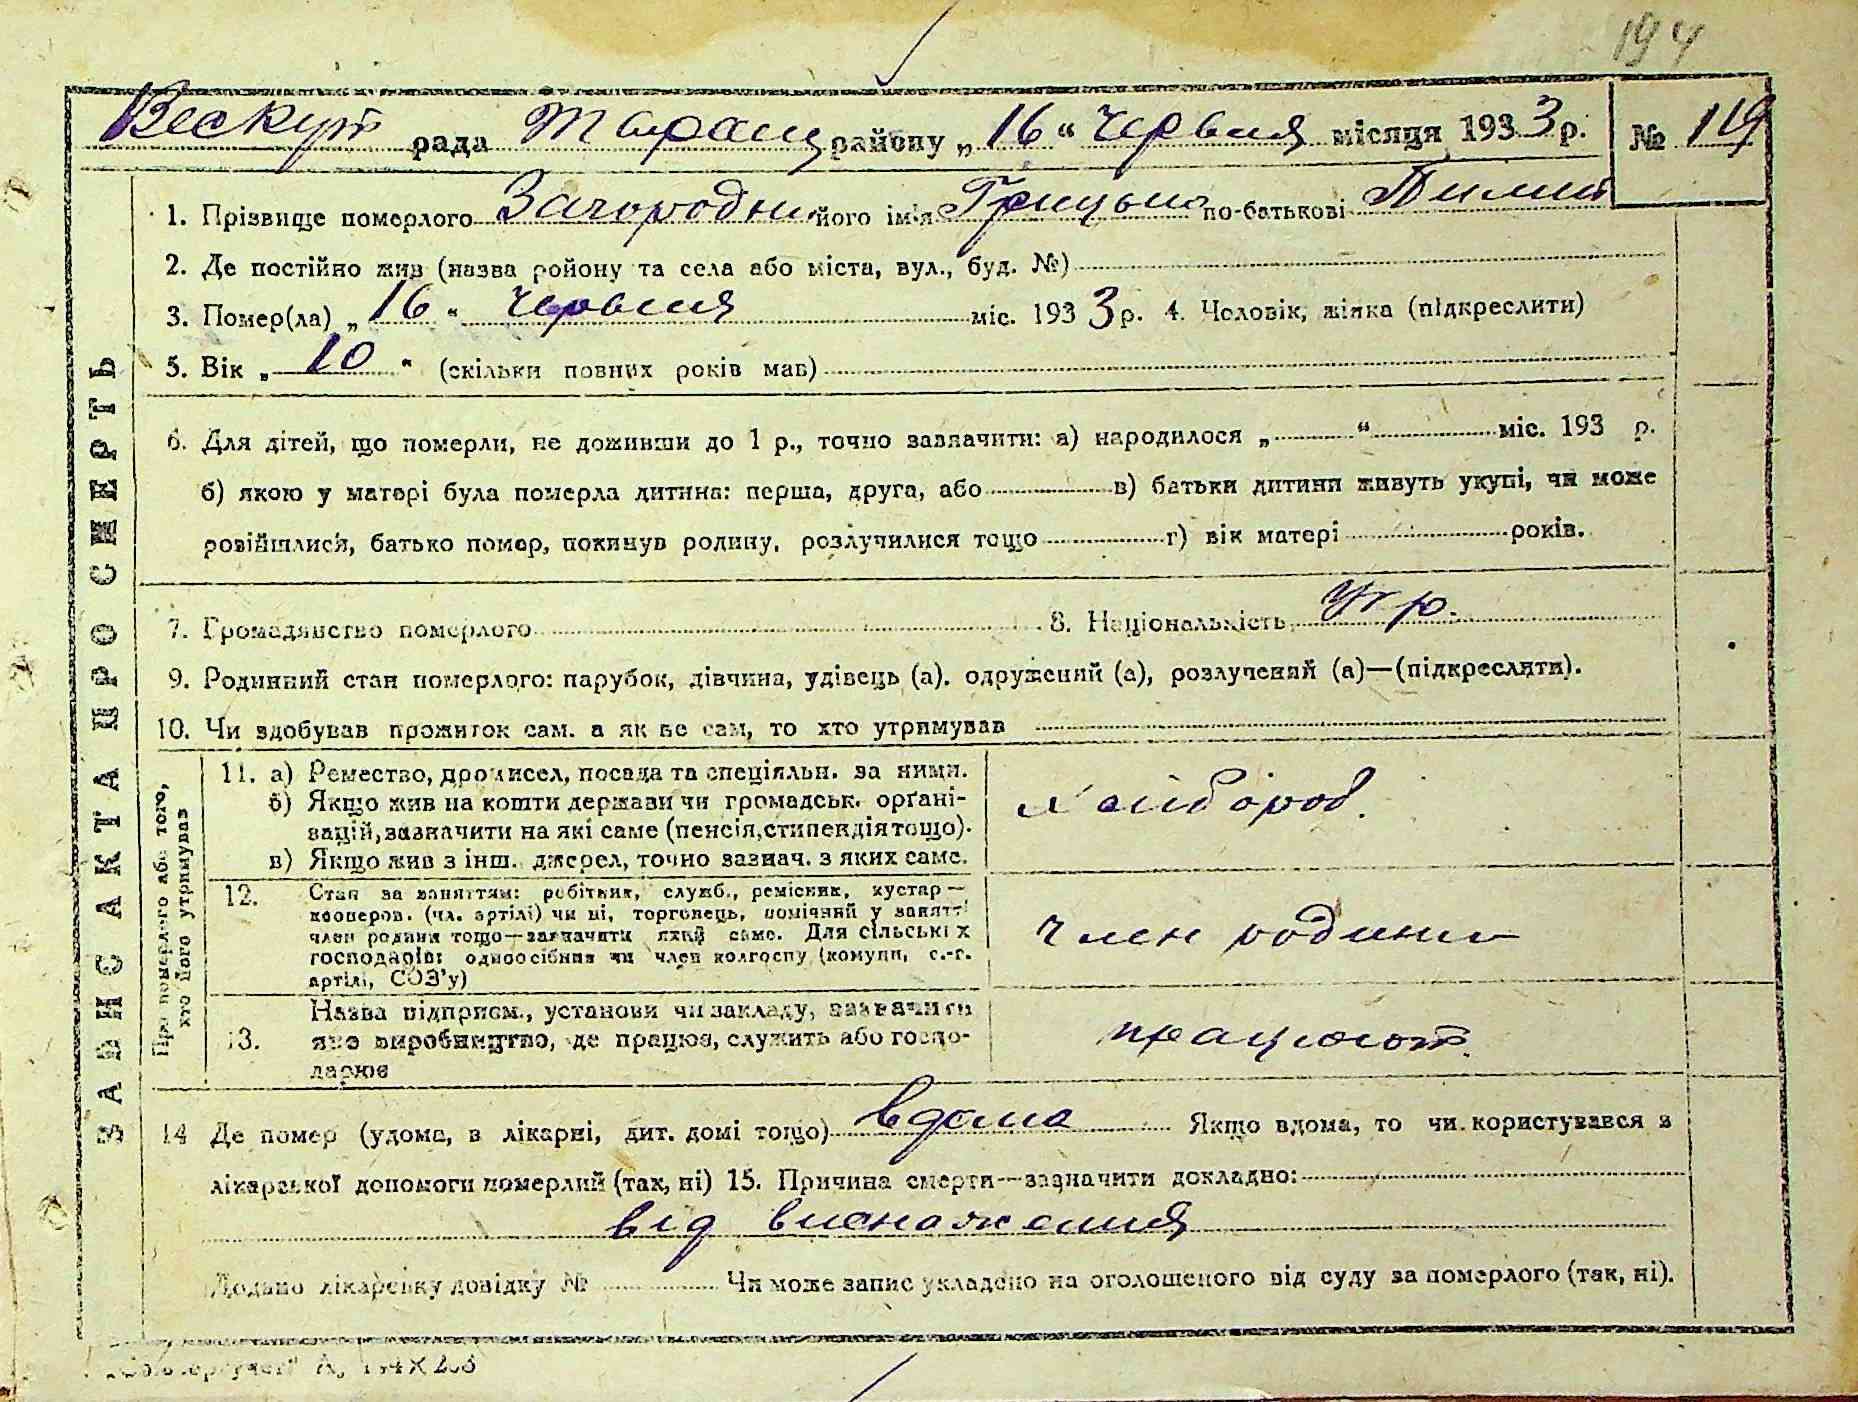 194
Вескут рада Таращ району „16“ червня місяця 1933 р. № 119
ЗАПИС АКТА ПРО СМЕРТЬ
1. Прізвище померлого Загородни його ім'я Грицько по-батькові Пилип
2. Де постійно жив (назва ройону та села або міста, вул., буд. №)
3. Помер(ла) „16“ червня міс. 1933 р. 4. Чоловік, жінка (підкреслити)
5. Вік „10“ (скільки повних років мав)
6. Для дітей, що померли, не доживши до 1 р., точно зазначити: а) народилося „ “ міс. 193 р.
б) якою у матері була померла дитина: перша, друга, або в) батьки дитини живуть укупі, чи може
розійшлися, батько помер, покинув родину, розлучилися тощо г) вік матері років.
7. Громадянство померлого 8. Національність Укр.
9. Родинний стан померлого: парубок, дівчина, удівець (а). одружений (а), розлучений (а)—(підкреслити).
10. Чи здобував прожиток сам. а як не сам, то хто утримував
Про померлого або того, хто його утримував
11. а) Ремество, промисел, посада та спеціяльн. за ними.
б) Якщо жив на кошти держави чи громадськ. орґані-
зацій, зазначити на які саме (пенсія, стипендія тощо).
в) Якщо жив з інш. джерел, точно зазнач. з яких саме.
хлібороб.
12. Стан за заняттям: робітник, служб., ремісник, кустар—
кооперов. (чл. артілі) чи ні, торговець, помічний у занятті
член родини тощо—зазначити який саме. Для сільських
господарів: одноосібник чи член колгоспу (комуни, с.-г.
артілі, СОЗ'у)
член родини
13. Назва підприєм., установи чи закладу, зазначити
яке виробництво, де працює, служить або госпо-
дарює
працюют.
14 Де помер (удома, в лікарні, дит. домі тощо) вдома Якщо вдома, то чи користувався з
лікарської допомоги померлий (так, ні) 15. Причина смерти—зазначити докладно:
від виснаження
Додано лікарську довідку № Чи може запис укладено на оголошеного від суду за померлого (так, ні).